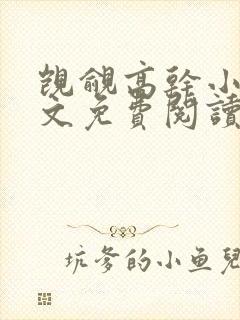 覬覦高幹小
文免費閱讀
坑爹的小鱼兒